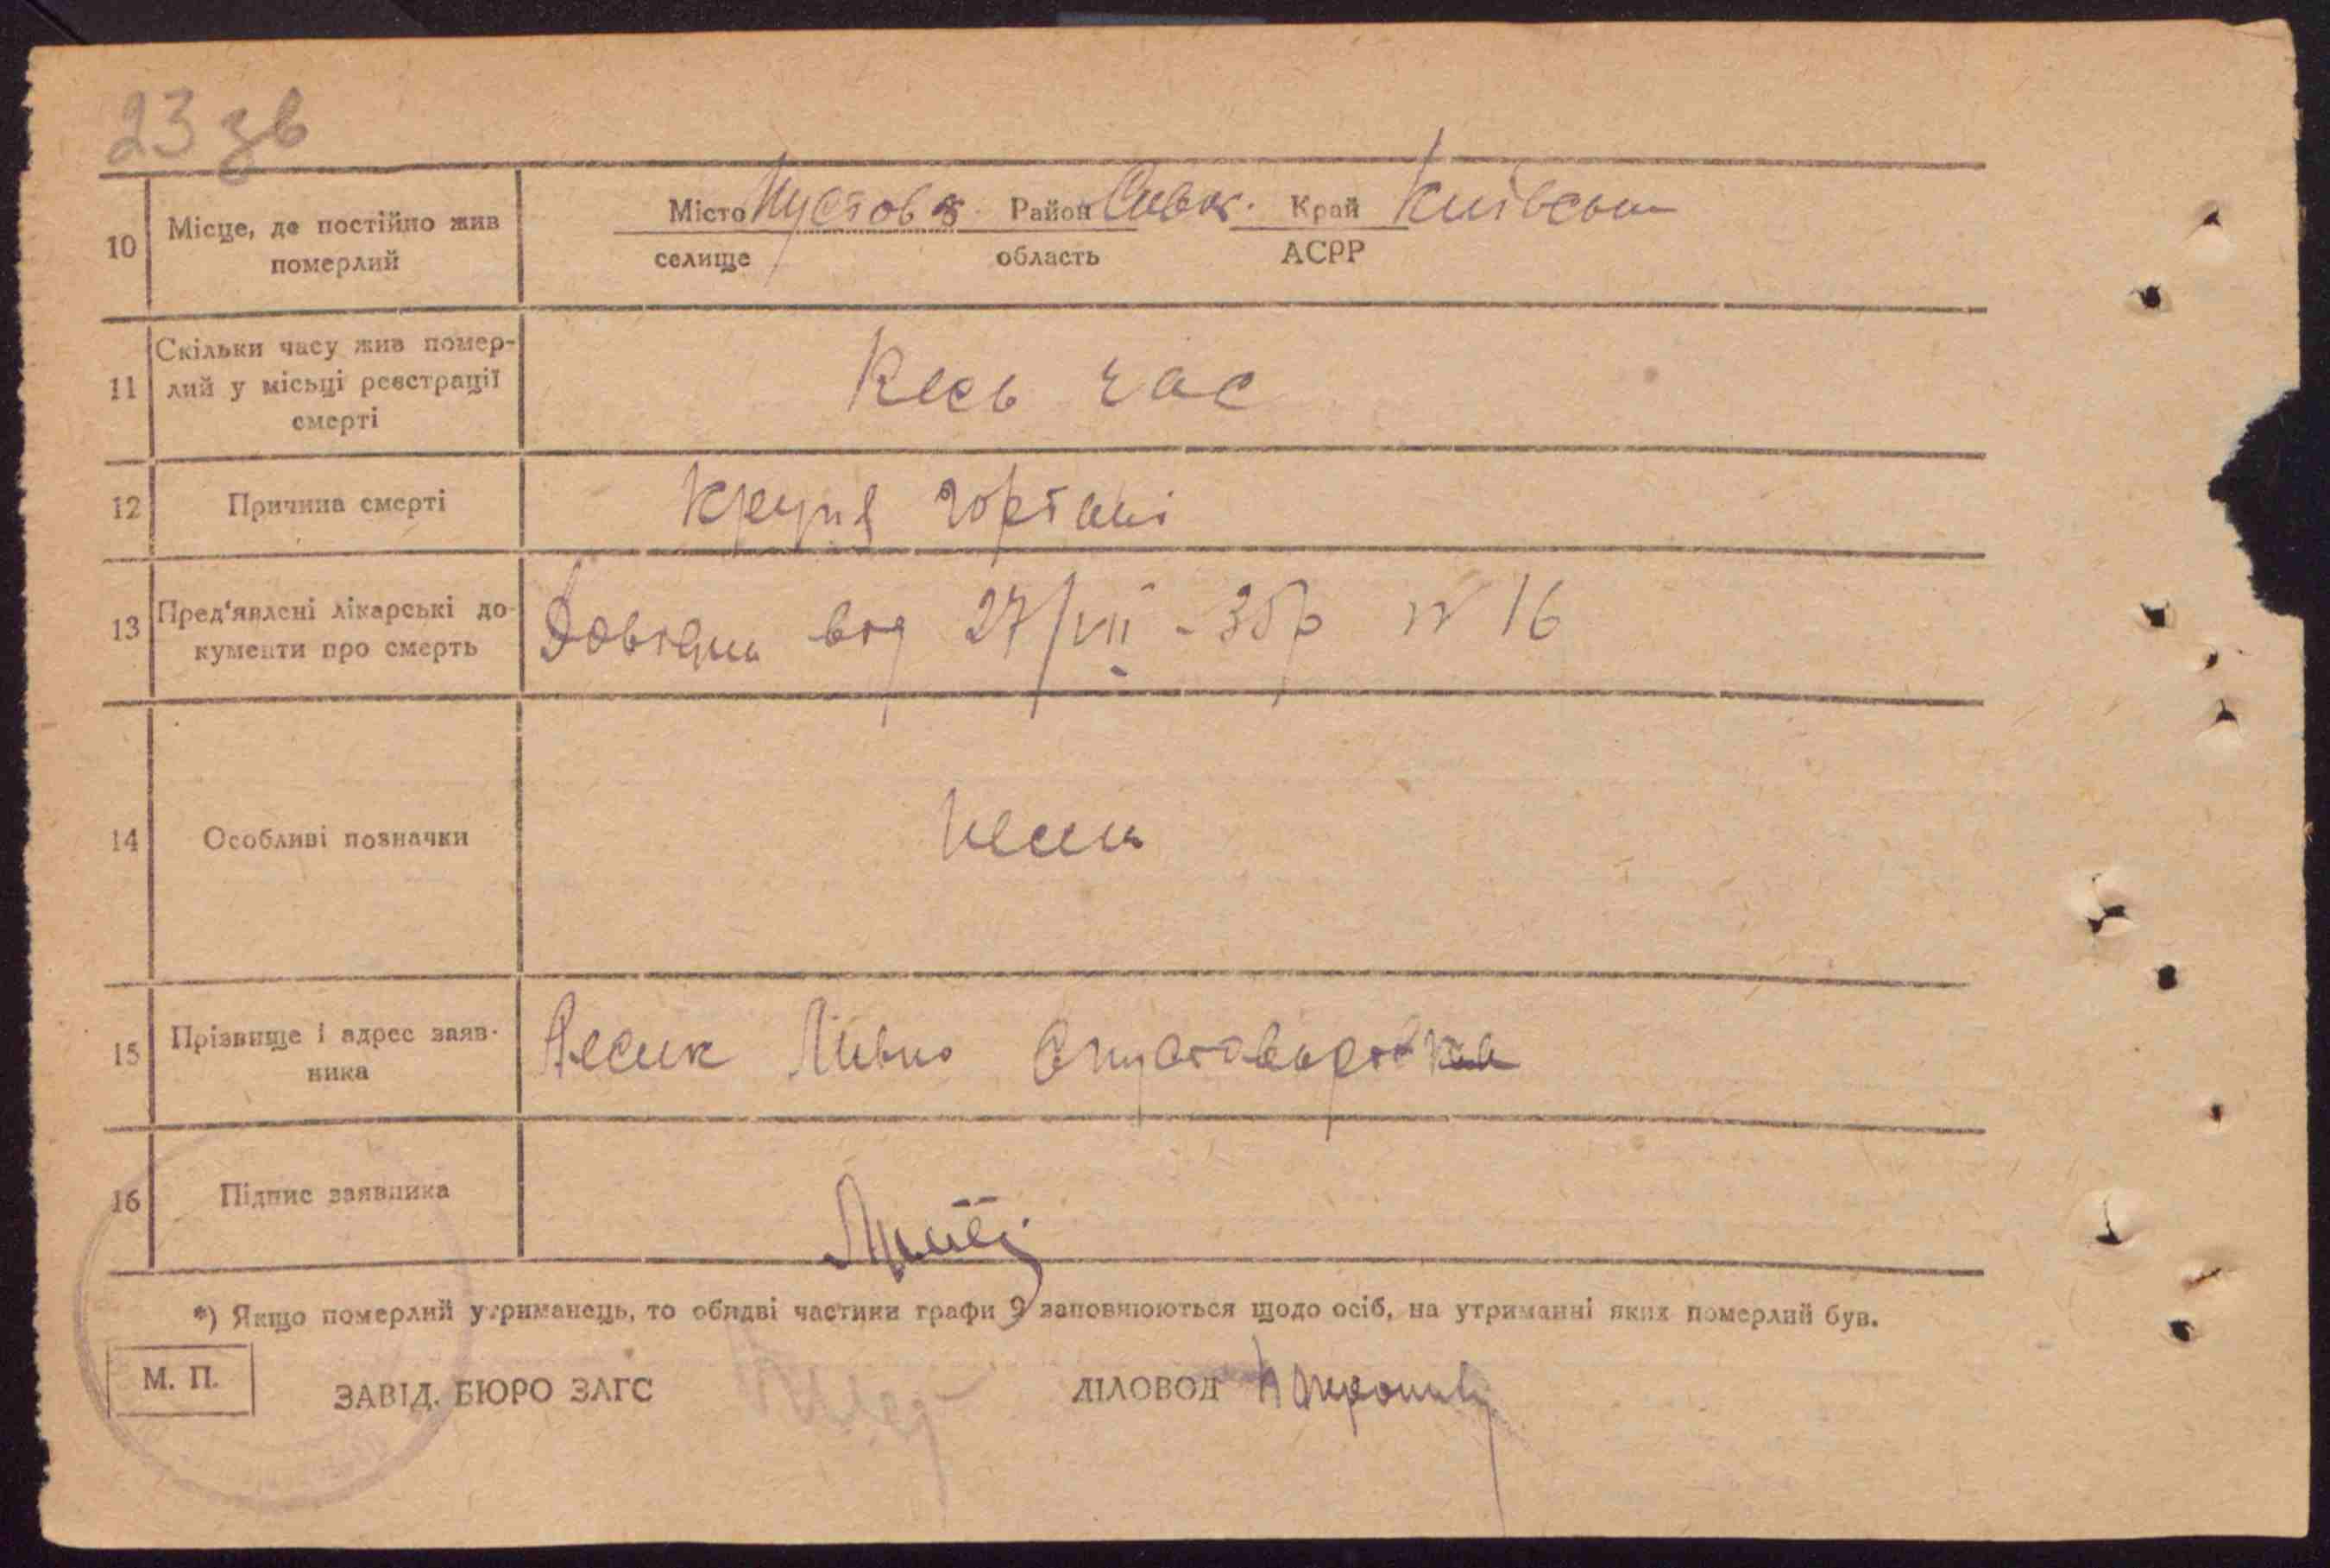 23 зв
10 Місце, де постійно жив померлий Місто Пустов Район Сквир. Край Київськ
селище область АСРР
11 Скільки часу жив помер-
лий у місьці реєстрації
смерті
Весь час
12 Причина смерті Крупа гортані
13 Пред'явлені лікарські до-
кументи про смерть
Довідка від 27/VII - 35р № 16
14 Особливі позначки Нема
15 Прізвище і адрес заяв-
ника
16 Підпис заявника
*) Якщо померлий утриманець, то обидві частини графи 9 заповнюються щодо осіб, на утриманні яких померлий був.
М. П. ЗАВІД. БЮРО ЗАГС ДІЛОВОД